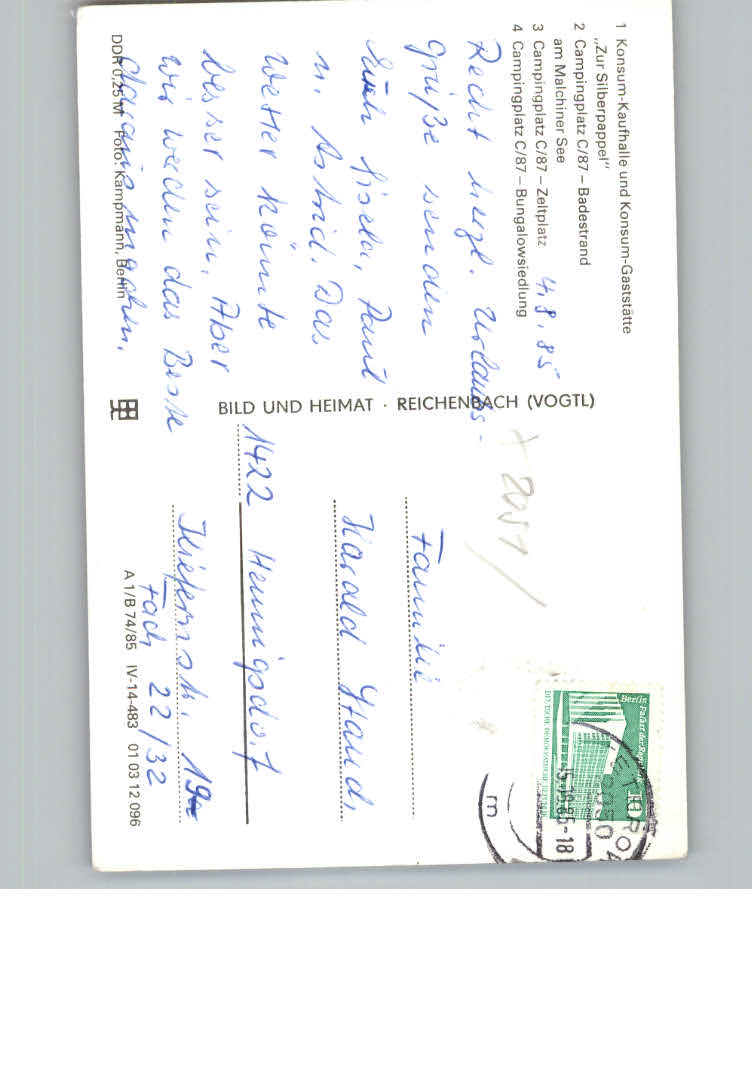 1 Konsum-Kaufhalle und Konsum-Gaststätte
„Zur Silberpappel"
2 Campingplatz C/87 – Badestrand
am Malchiner See
3 Campingplatz C/87 – Zeltplatz
4 Campingplatz C/87 – Bungalowsiedlung
4.8.85
Recht herzl. Urlaubs-
grüße senden
Euch Gisela, Paul
u. Astrid. Das
Wetter könnte
besser sein. Aber
wir werden das Beste
daraus machen.
DDR 0,25 M Foto: Kampmann, Berlin
BILD UND HEIMAT · REICHENBACH (VOGTL)
2051
Familie
Harald
1422 Hennigsdorf
Kiefernstr. 19
Fach 22/32
A 1/B 74/85 IV-14-483 01 03 12 096
Berlin, Palast der Republik
10
DEUTSCHE DEMOKRATISCHE REPUBLIK
-5.-8.85-18
m